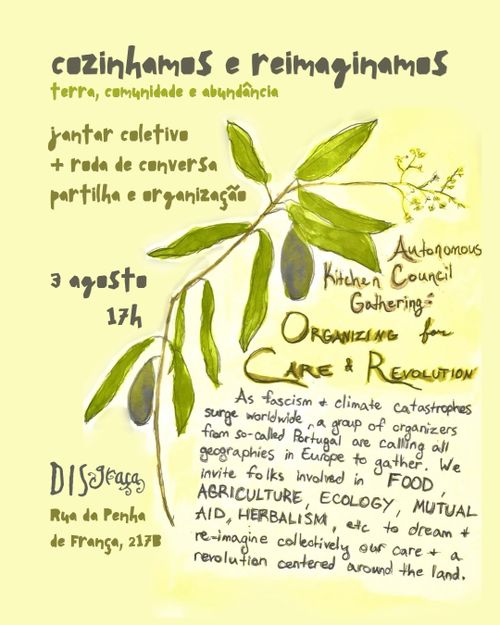 cozinhamos e reimaginamos
terra, comunidade e abundância
jantar coletivo
+ roda de conversa
partilha e organização
3 agosto
17h
Autonomous
Kitchen Council
Gathering:
ORGANIZING for
CARE & REVOLUTION
As fascism + climate catastrophes
surge worldwide, a group of organizers
from so-called Portugal are calling all
geographies in Europe to gather. We
invite folks involved in FOOD,
AGRICULTURE, ECOLOGY, MUTUAL
AID, HERBALISM, etc to dream +
re-imagine collectively our care + a
revolution centered around the land.
DISgraça
Rua da Penha
de França, 217B